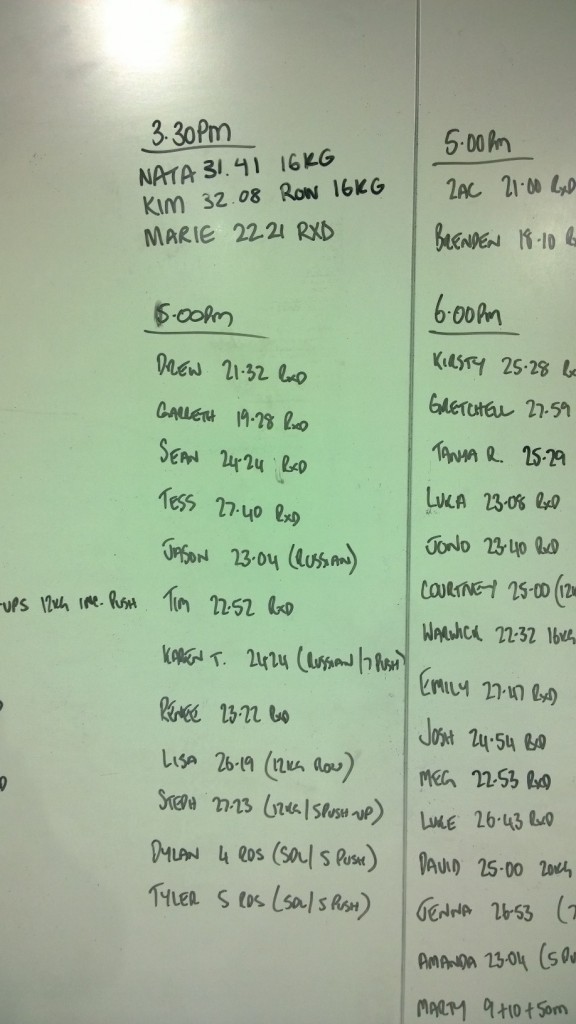 3.30PM
NATA 31.41 16KG
KIM 32.08 ROW 16KG
MARIE 22.21 RXD
5.00PM
DREW 21.32 RXD
GARRETH 19.28 RXD
SEAN 24.24 RXD
TESS 27.40 RXD
JASON 23.04 (RUSSIAN)
-UPS 12KG PUSH
TIM 22.52 RXD
KAREN T. 24.24 (RUSSIAN/7 PUSH)
RENEE 23.22 RXD
LISA 26.19 (12KG ROW)
STEPH 27.23 (12KG/5PUSH-UP)
DYLAN 4 RDS (50L/5 PUSH)
TYLER 5 RDS (50L/5 PUSH)
5.00PM
ZAC 21.00 RXD
BRENDEN 18.10
6.00PM
KIRSTY 25.28
GRETCHELL 27.59
TANIA R. 25.29
LUKA 23.08 RXD
JONO 23.40 RXD
COURTNEY 25.00 (12K
WARWICK 22.32 16KG
EMILY 27.47 RXD
JOSH 24.54 RXD
MEG 22.53 RXD
LUKE 26.43 RXD
DAVID 25.00 20KG
JENNA 26.53 (7
AMANDA 23.04 (5 PU
MARTY 9+10+50m